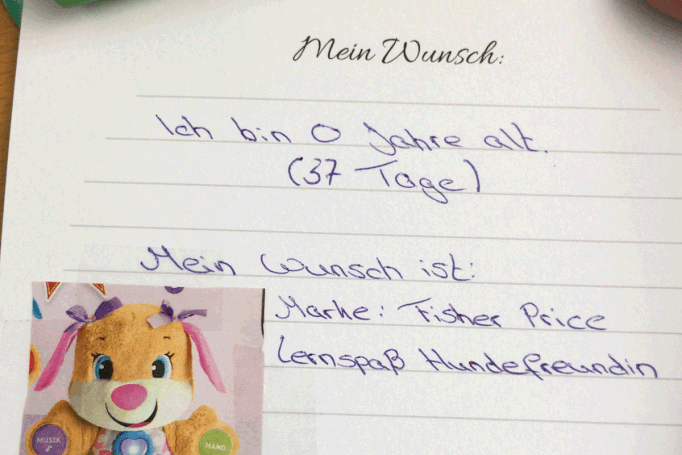 Mein Wunsch:
Ich bin 0 Jahre alt.
(37 Tage)
Mein Wunsch ist:
Marke: Fisher Price
Lernspaß Hundefreundin
MUSIK
HAND